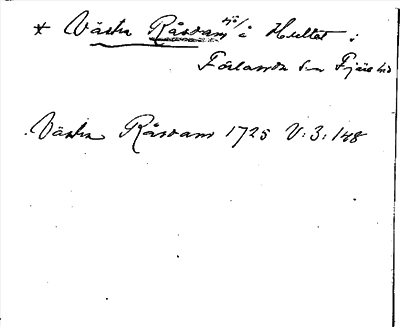 * Västra Råsvam sjö/ å Hultet i
Förlanda sn Fjäre hd
Västra Råsvam 1725 V:3:148